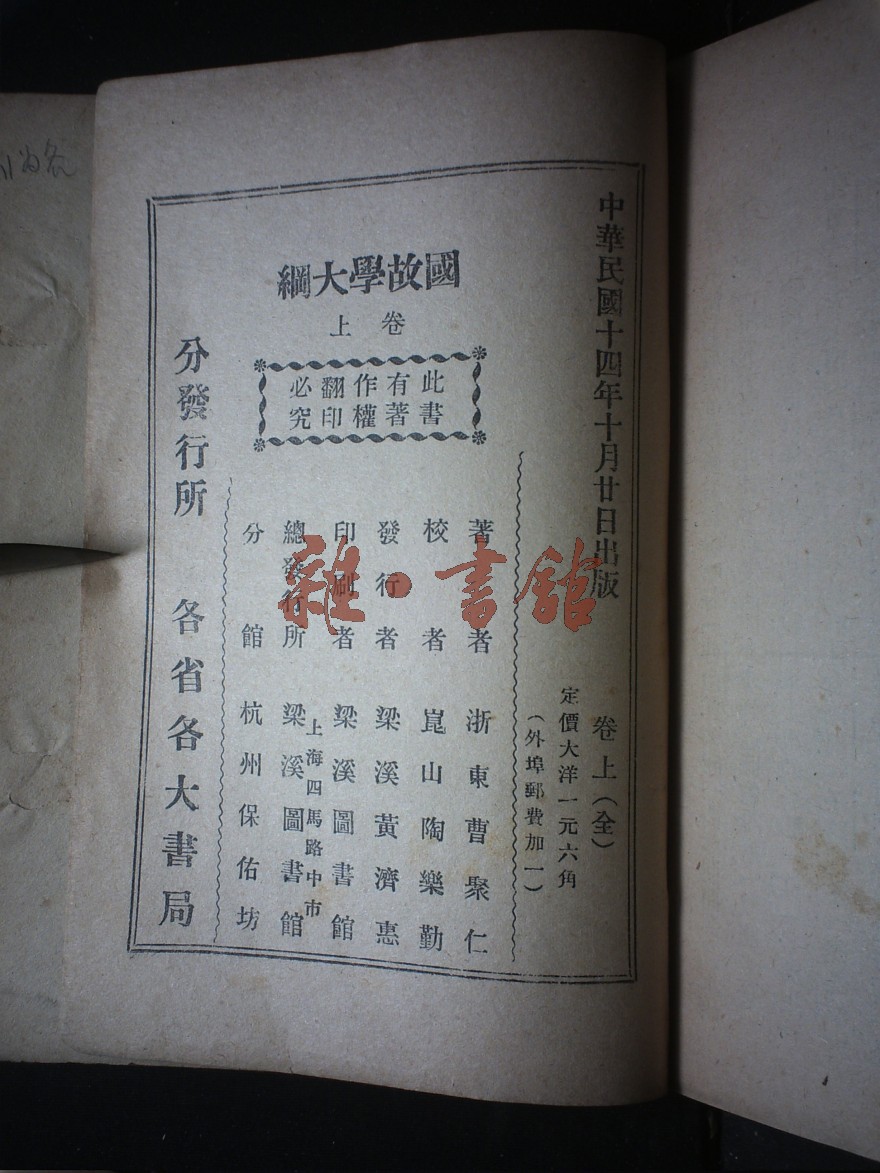 中華民國十四年十月廿日出版
卷上(全)
定價大洋一元六角
(外埠郵費加一)
國故學大綱
卷上
此書
有著
作權
翻印
必究
著者 浙東曹聚仁
校者 崑山陶樂勤
發行者 梁溪黃濟惠
印刷者 梁溪圖書館
上海四馬路中市
總發行所 梁溪圖書館
分館 杭州保佑坊
分發行所 各省各大書局
雜·書館